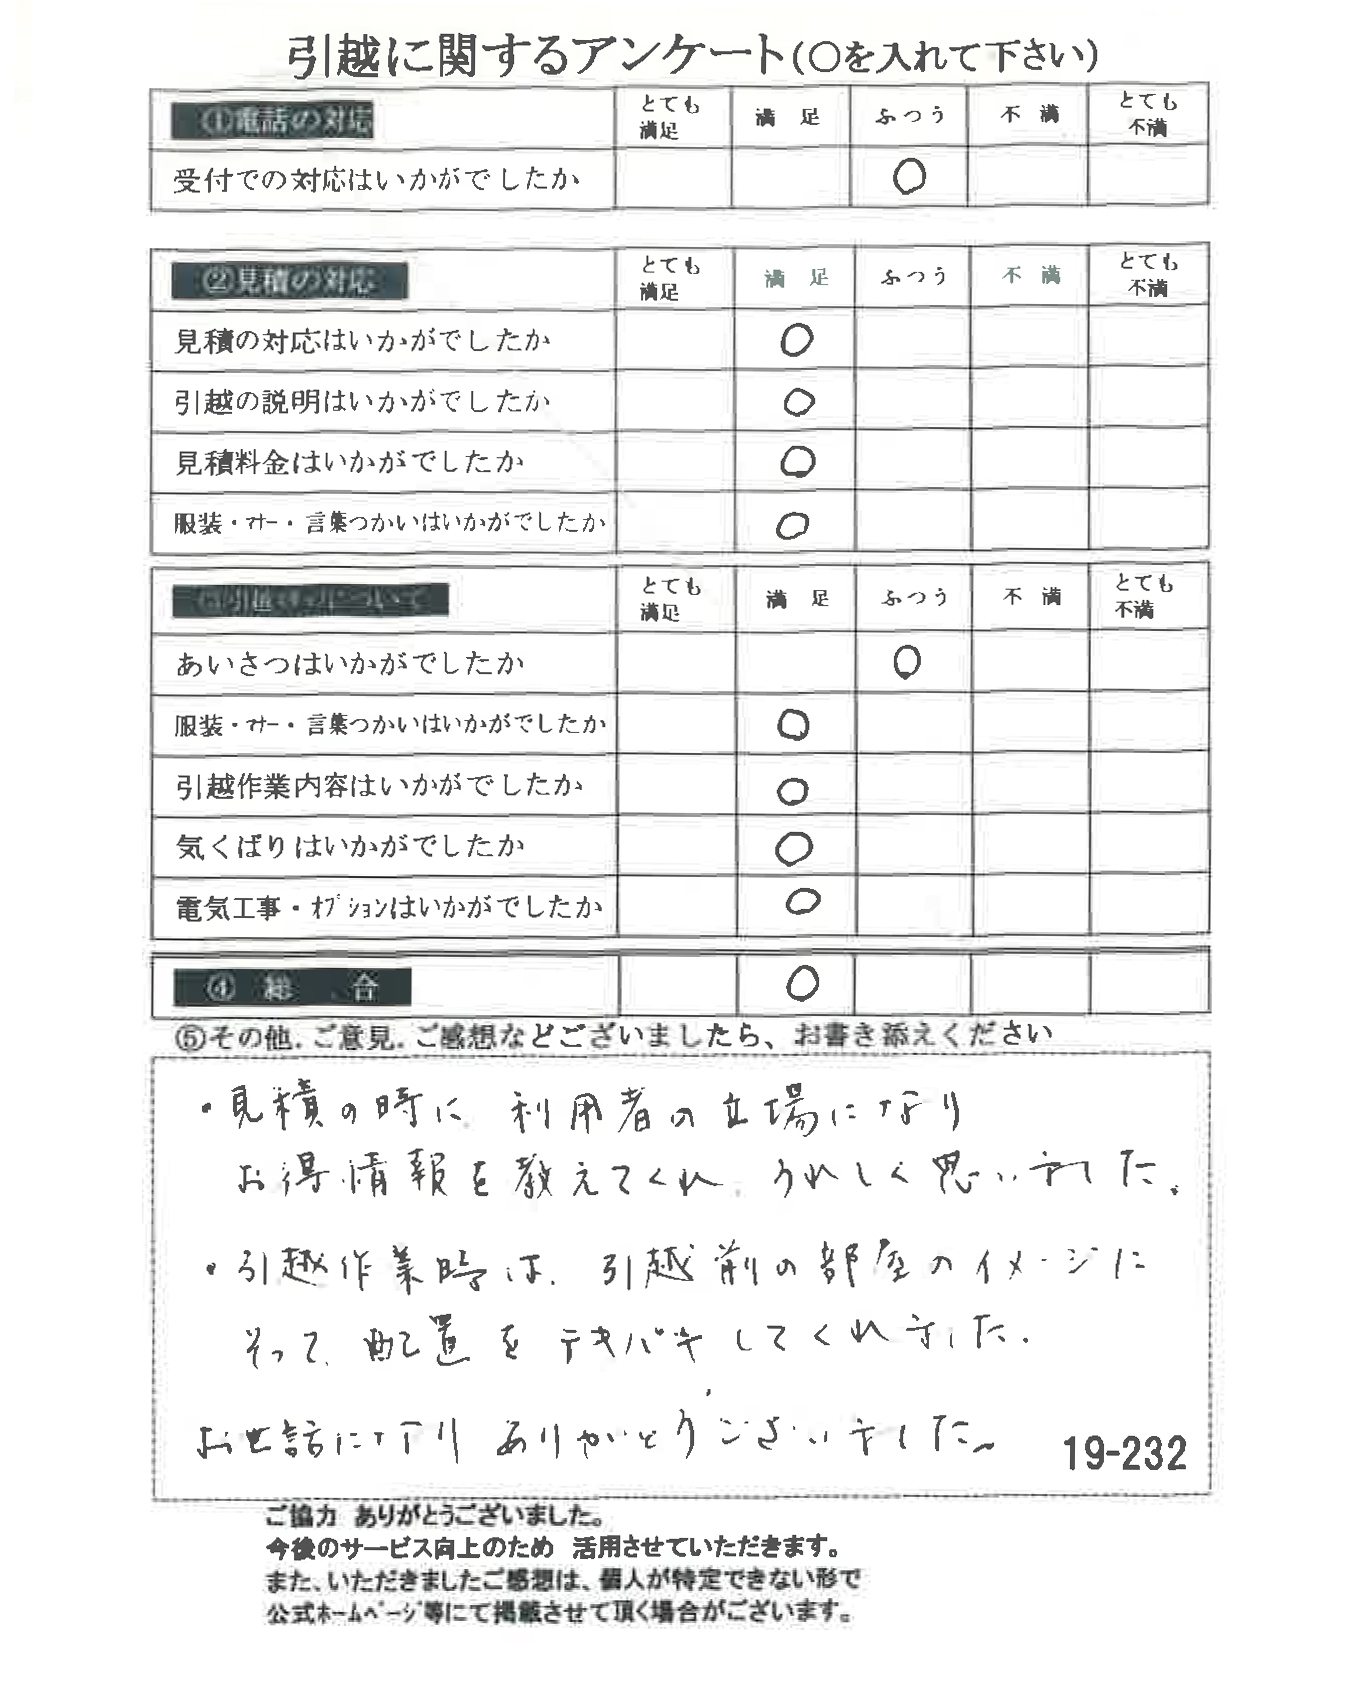 引越に関するアンケート(〇を入れて下さい)
①電話の対応 とても満足 満足 ふつう 不満 とても不満
受付での対応はいかがでしたか ○
②見積の対応 とても満足 満足 ふつう 不満 とても不満
見積の対応はいかがでしたか ○
引越の説明はいかがでしたか ○
見積料金はいかがでしたか ○
服装・ﾏﾅｰ・言葉つかいはいかがでしたか ○
とても満足 満足 ふつう 不満 とても不満
あいさつはいかがでしたか ○
服装・ﾏﾅｰ・言葉つかいはいかがでしたか ○
引越作業内容はいかがでしたか ○
気くばりはいかがでしたか ○
電気工事・ｵﾌﾟｼｮﾝはいかがでしたか ○
④総合 ○
⑤その他、ご意見、ご感想などございましたら、お書き添えください
・見積の時に 利用者の立場になり
お得情報を教えてくれ、うれしく思いました。
・引越作業時は、引越前の部屋のイメージに
そって、配置をテキパキしてくれました。
お世話になり ありがとうございました。
19-232
ご協力 ありがとうございました。
今後のサービス向上のため 活用させていただきます。
また、いただきましたご感想は、個人が特定できない形で
公式ﾎｰﾑﾍﾟｰｼﾞ等にて掲載させて頂く場合がございます。